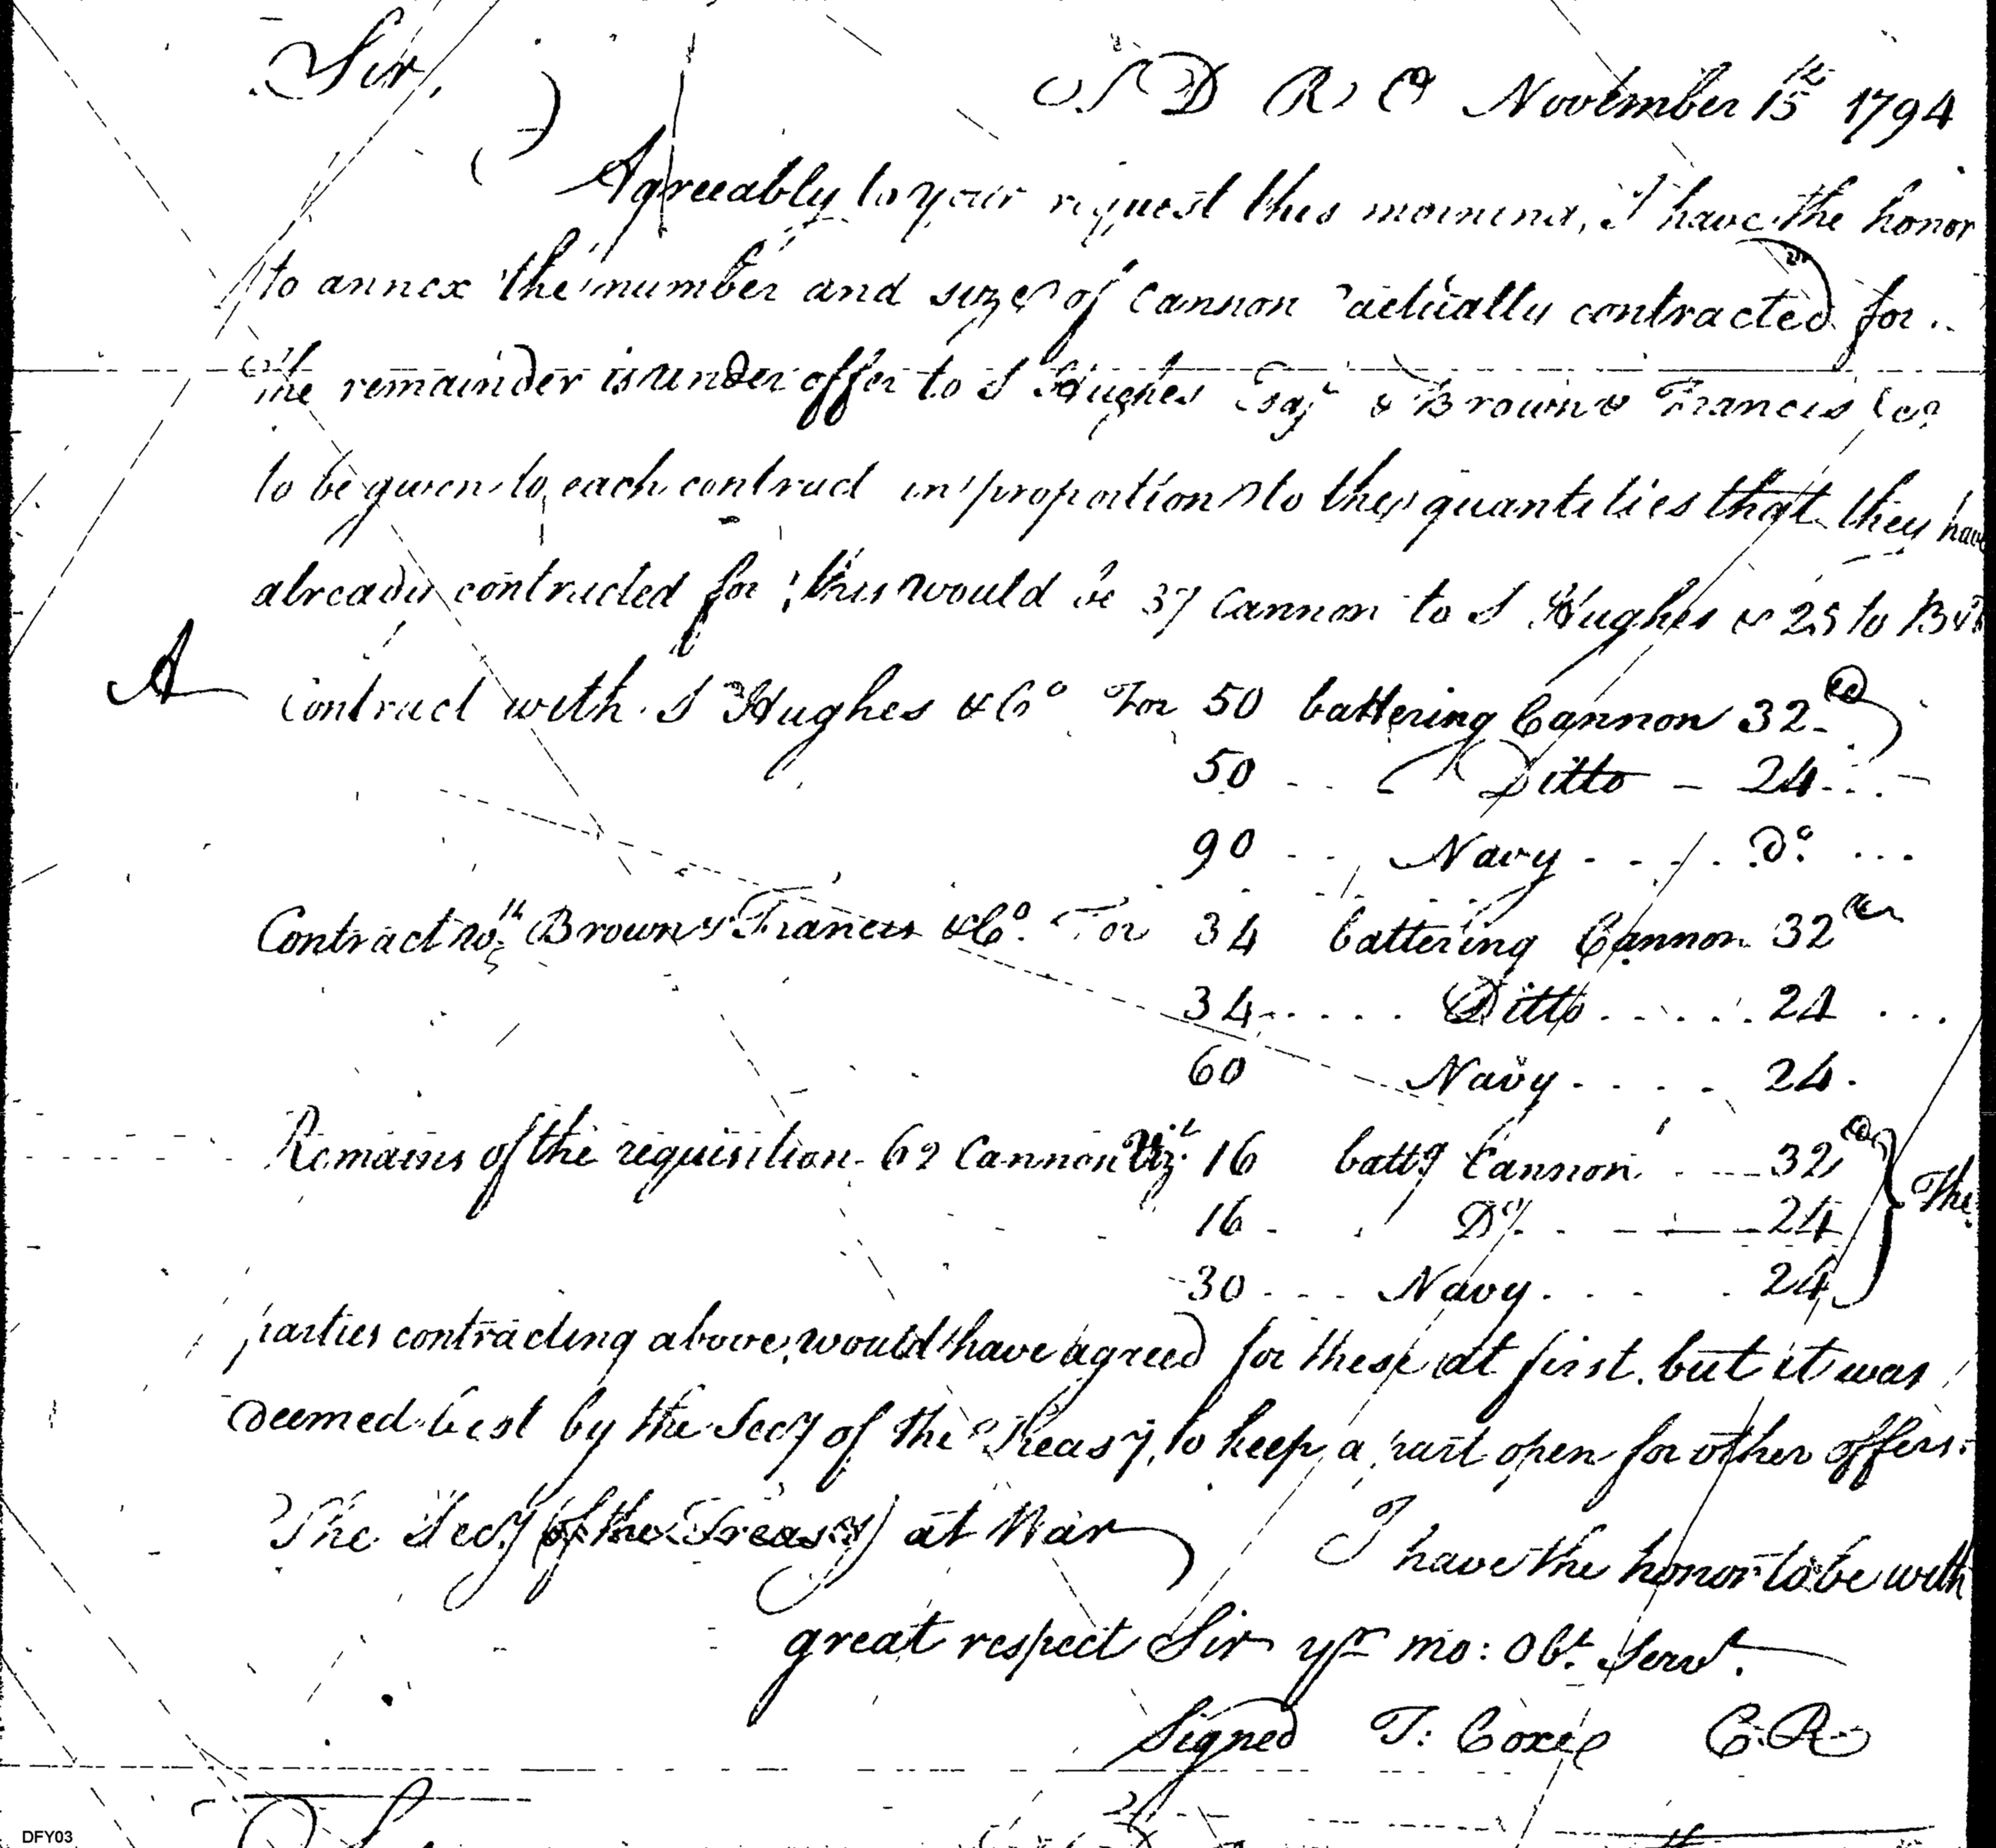 Sir,
T D R O November 15th 1794
Agreeably to your request this morning, I have the honor
to annex the number and sizes of Cannon actually contracted for.
The remainder is under offer to S Hughes Esqr & Brown & Francis & Co
to be given to each contract in proportion to the quantities that they have
already contracted for, this would be 37 Cannon to S Hughes & 25 to B & F
A Contract with S Hughes & Co For 50 battering Cannon 32
50 .. Ditto - 24 ...
90 .. Navy .... Do. ...
Contract wth. Brown & Francis & Co. For 34 battering Cannon 32
34 .... Ditto ..... 24 ...
60 Navy .... 24.
Remains of the requisition 62 Cannon Vizt 16 battg Cannon 32 } The
16 . . Do. - - 24
30 ... Navy ... 24
parties contracting above would have agreed for these at first, but it was
deemed best by the Secy of the Treasy, to keep a part open for other offers.
The Secy (of the Treasy) at War I have the honor to be with
great respect Sir yr mo: Obt. Servt.
Signed T: Coxe C.R
DFY03